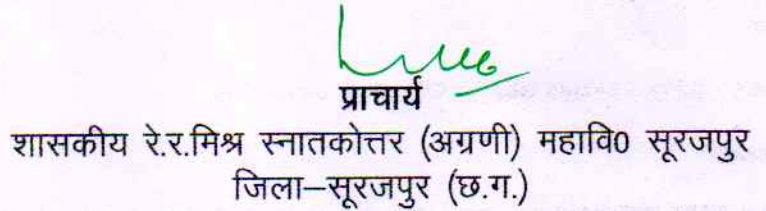 प्राचार्य
शासकीय रे.र.मिश्र स्नातकोत्तर (अग्रणी) महावि0 सूरजपुर
जिला–सूरजपुर (छ.ग.)